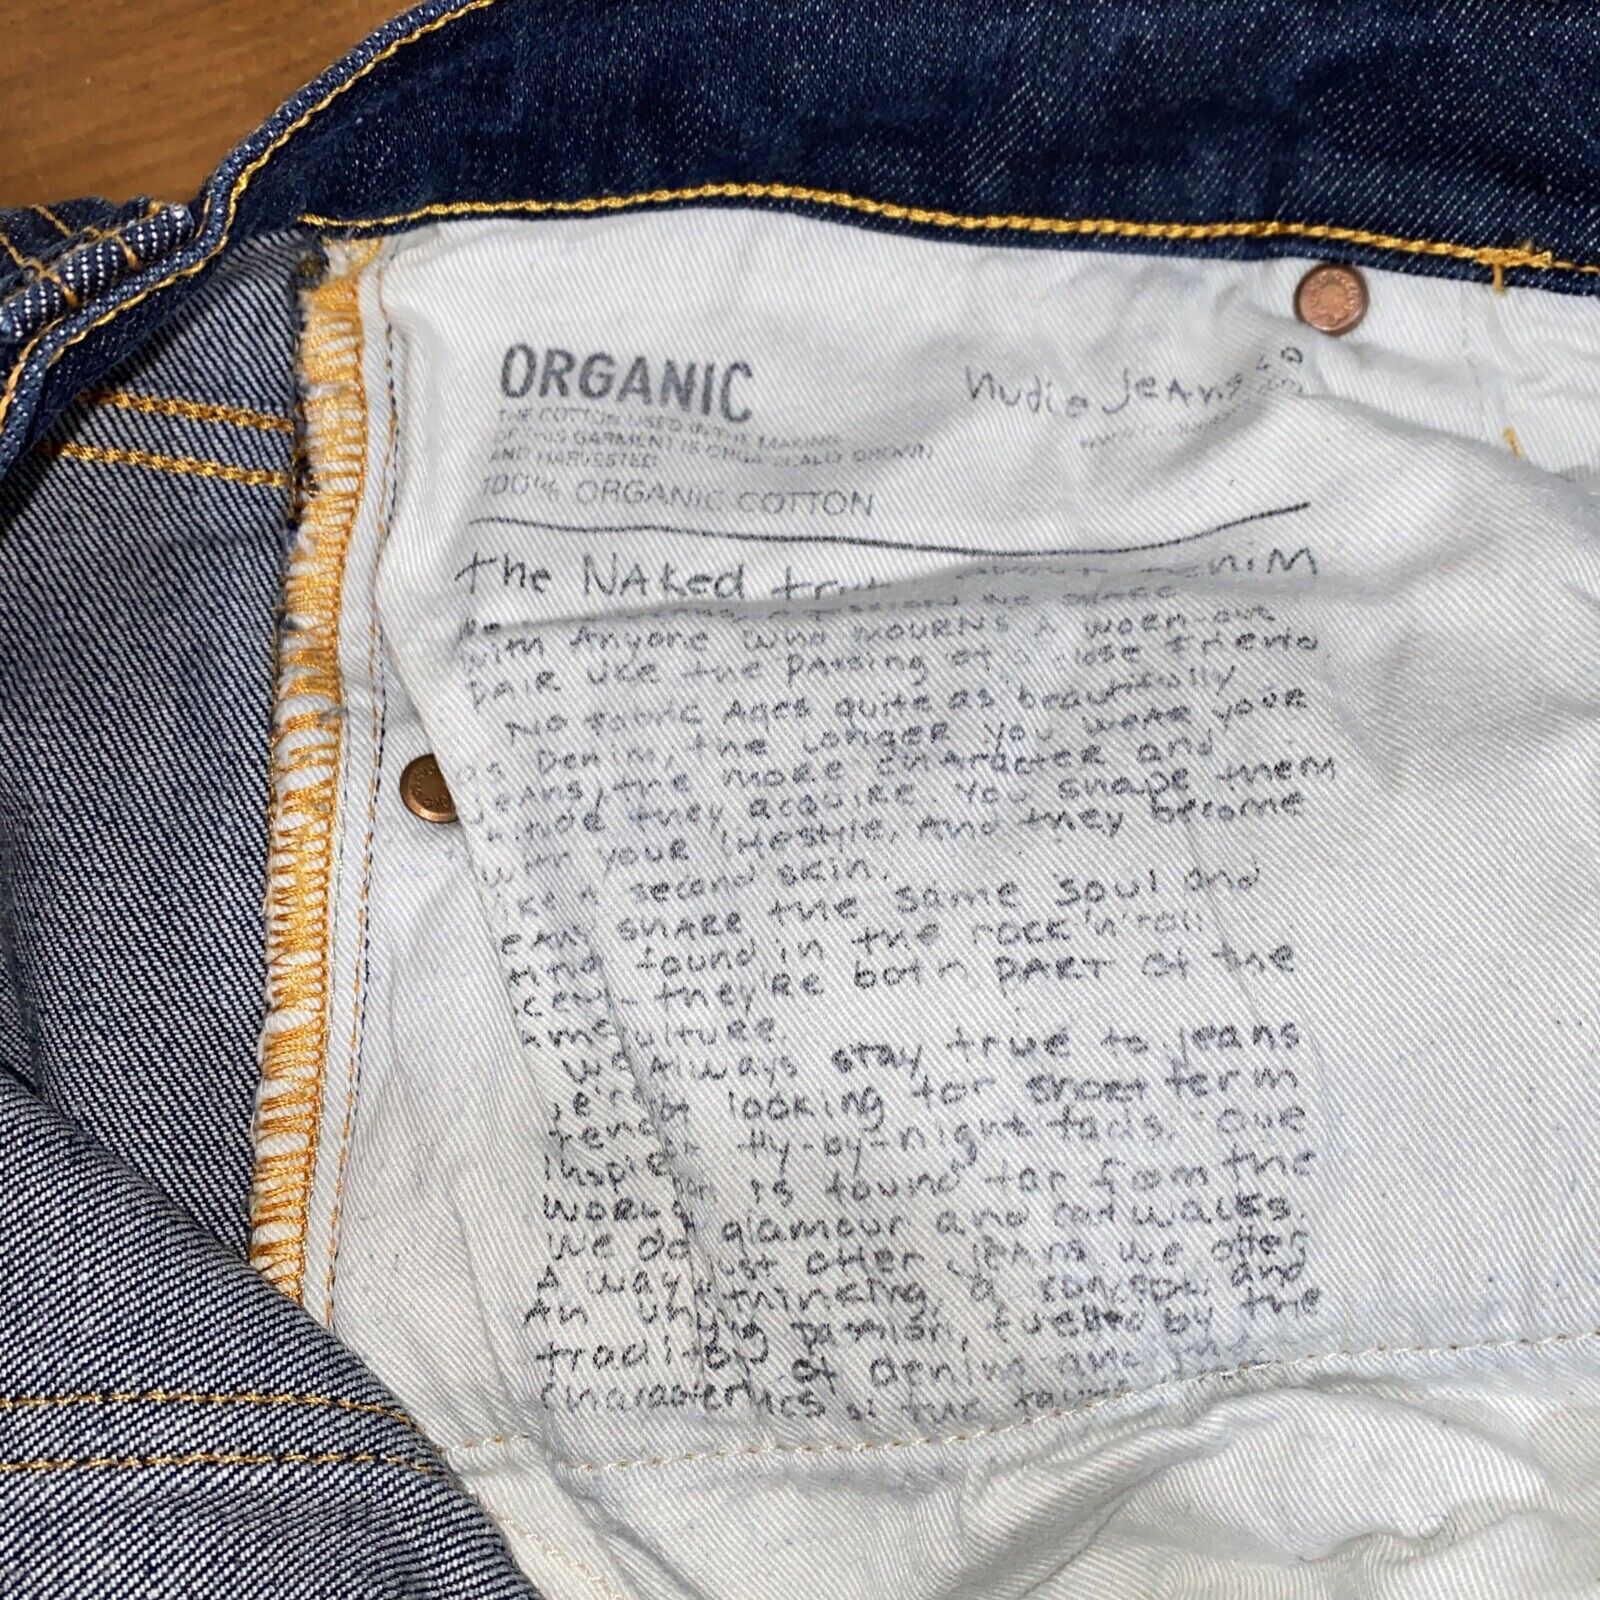 ORGANIC
THE COTTON USED IN THE MAKING
OF THIS GARMENT IS ORGANICALLY GROWN
AND HARVESTED
100% ORGANIC COTTON
Nudie Jeans co
the NAked denim
A PASSION we share
with Anyone who mourns A worn-out
pair like the passing of close friend
No fabric Ages quite as beautifully
as Denim, the longer you wear your
jeans, the more character and
they acquire. You shape them
your lifestyle, And they become
A second skin.
share the same soul and
found in the rock 'n' roll
they're both PART of the
We Always stay true to jeans
looking for short term
fly-by-night fads. Our
is found far from the
glamour and catwalks.
We offer jeans. We offer
A way thinking, a concept and
An passion, fuelled by the
of denim and
characteristics of the